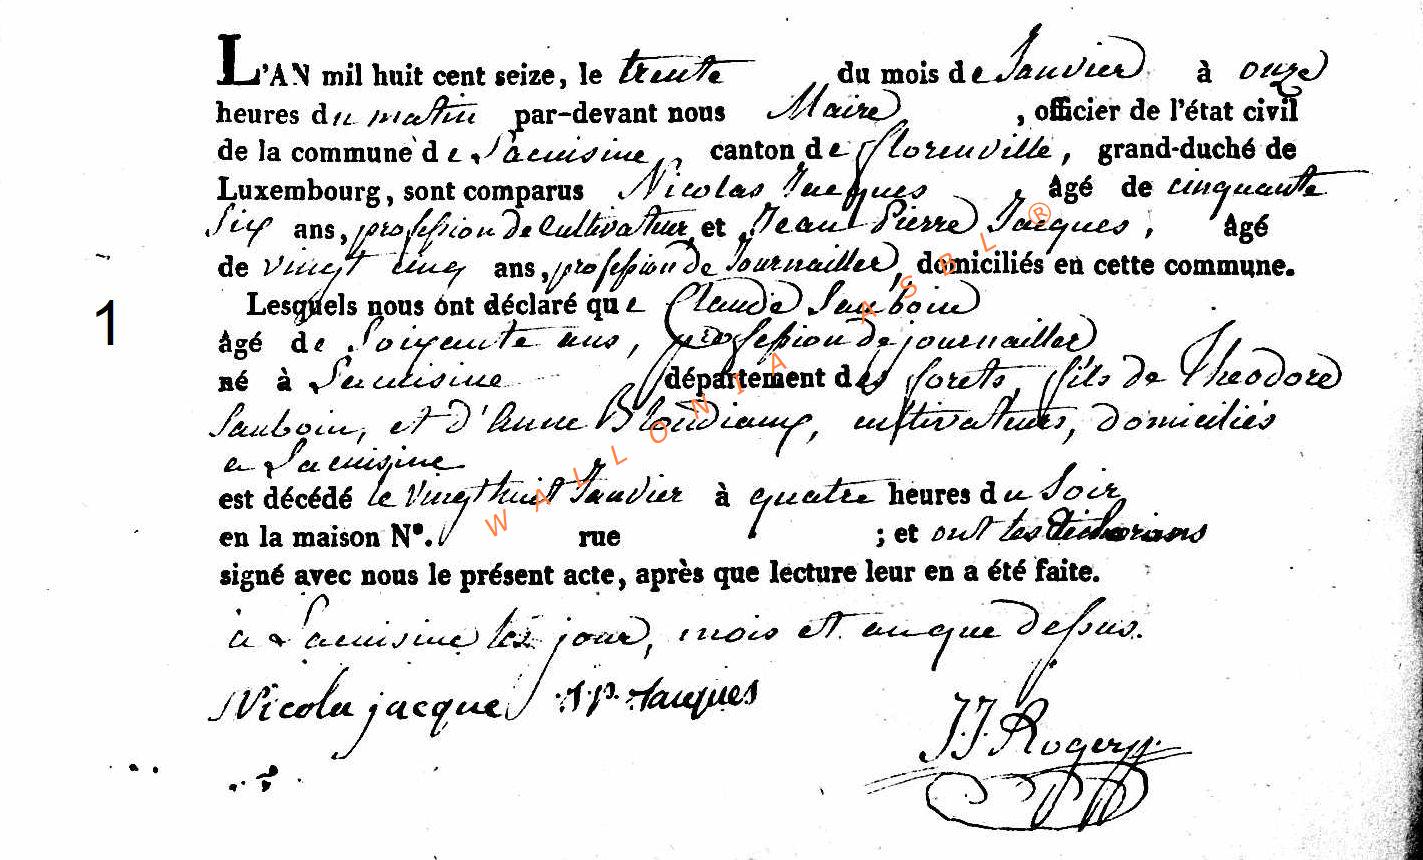 L'AN mil huit cent seize, le trente du mois de Janvier à onze
heures du matin par-devant nous Maire , officier de l'état civil
de la commune de Lacuisine, canton de florenville, grand-duché de
Luxembourg, sont comparus Nicolas Jacques , âgé de cinquante
Six ans, profession de Cultivateur, et Jean Pierre Jacques, âgé
de vingt cinq ans, profession de Journailler, domiciliés en cette commune.
1
Lesquels nous ont déclaré que Claude Sauboin
âgé de Soixante ans, profession de journailler
né à Lacuisine département des forets, fils de Theodore
Sauboin, et d'Anne cultivateurs, domiciliés
a Lacuisine
est décédé le vingt huit Janvier à quatre heures du Soir
en la maison Nº. rue ; et ont les
signé avec nous le présent acte, après que lecture leur en a été faite.
à Lacuisine les jour, mois et an que dessus.
Nicola jacque J.P. Jacques
J.J. Rogery
WALLONIA ASBL ®